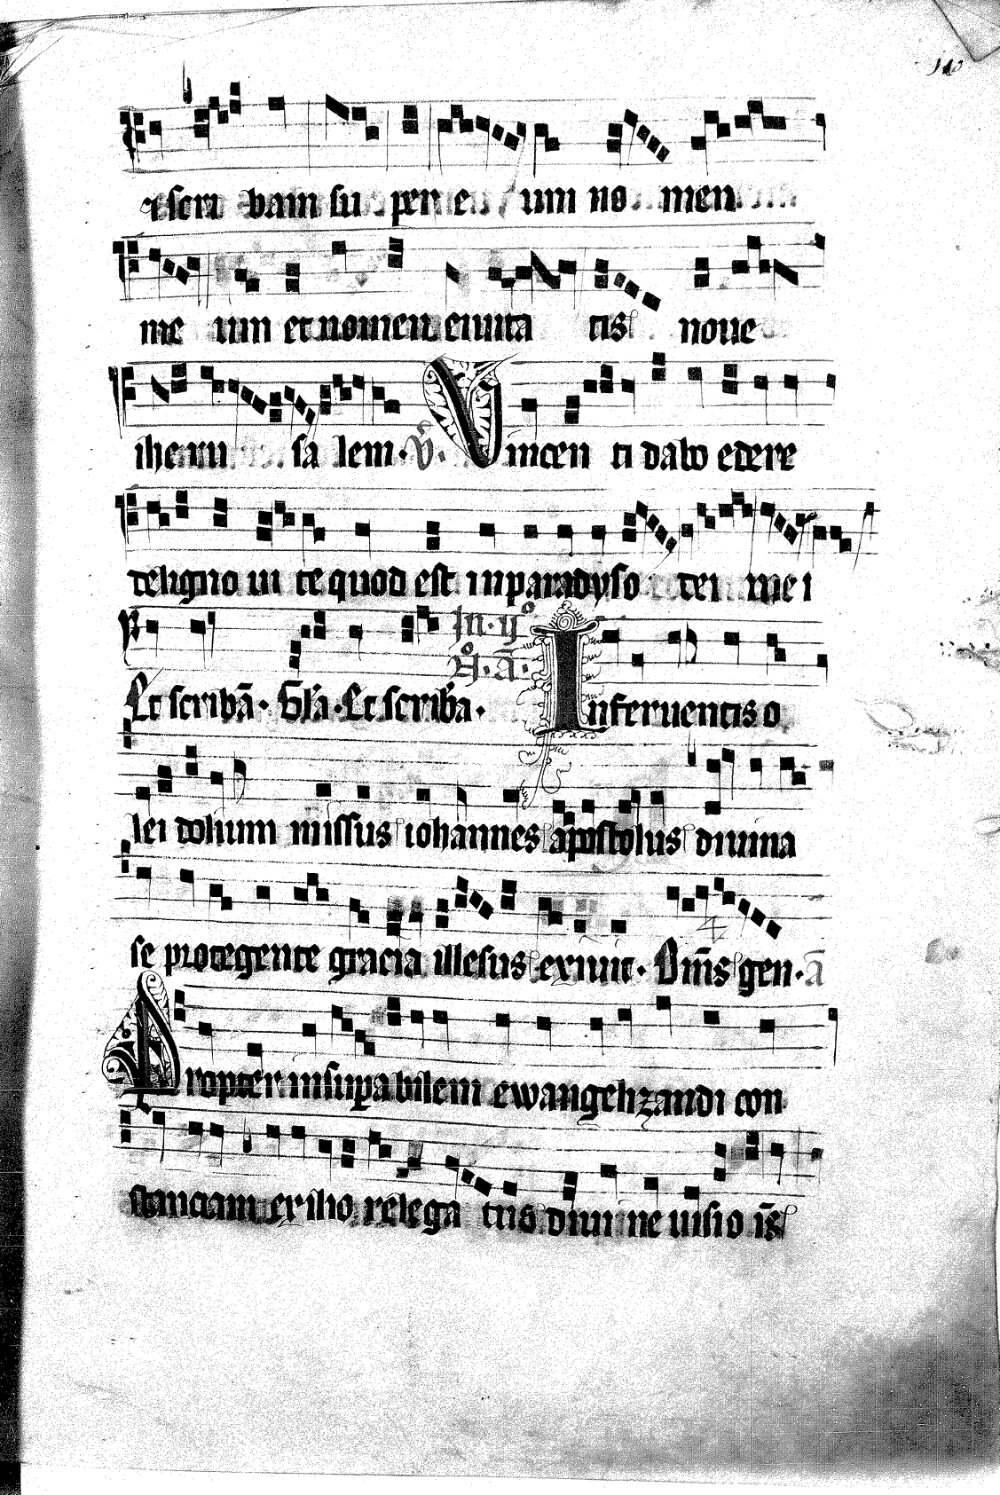 et scri bam su per e um no men
me um et nomen ciuita tis noue
iheru sa lem · V̄ · Vincen ti dabo edere
de ligno ui te quod est in paradyso dei me i
Et scribā · Gl'a · Et scribā · In · ij°
Inferuentis o
lei dolium missus iohannes apostolus diuina
se protegente gracia illesus exiuit · Dm̄s gen · ā
Propter insup̄abilem ewangelizandi con
stanciam exilio relega tus diuine uisio īs